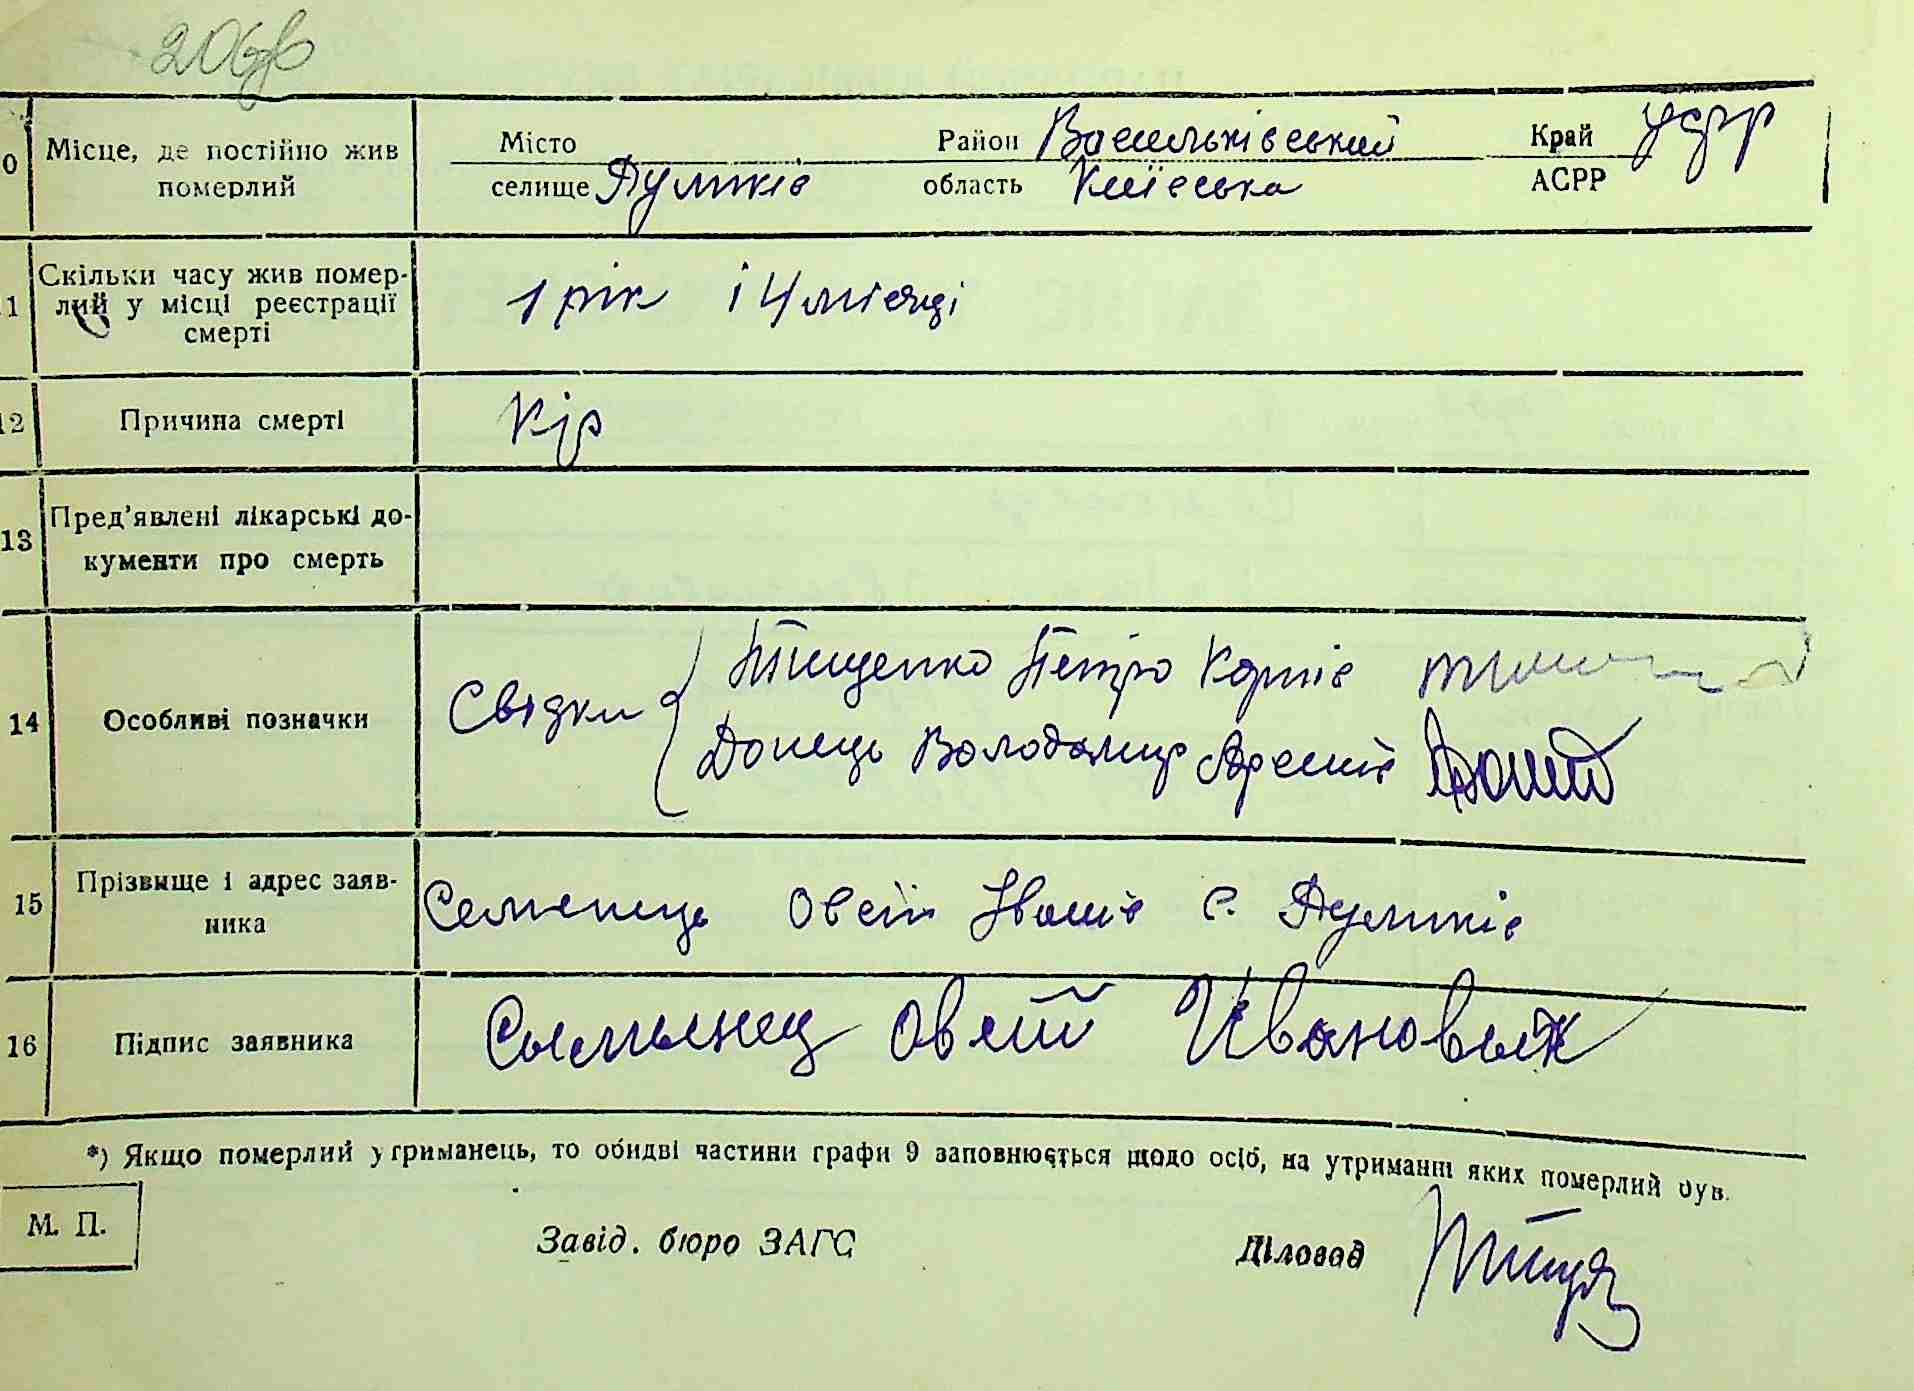 206
0 Місце, де постійно жив померлий Місто селище Думтків Район Васильківський область Київська Край АСРР УСРР
11 Скільки часу жив помер-
лий у місці реєстрації
смерті
1 рік і 4 місяці
12 Причина смерті Кір
13 Пред'явлені лікарські до-
кументи про смерть
14 Особливі позначки Свідки
Тищенко Петро Корнів
Донець Володимир Арсенів
15 Прізвище і адрес заяв-
ника
Семенець Овсій Іванів с.
16 Підпис заявника Сыменец Овсій Ивановыч
*) Якщо померлий утриманець, то обидві частини графи 9 заповнюється щодо осіб, на утриманні яких померлий був.
М. П. Завід. бюро ЗАГС Діловод